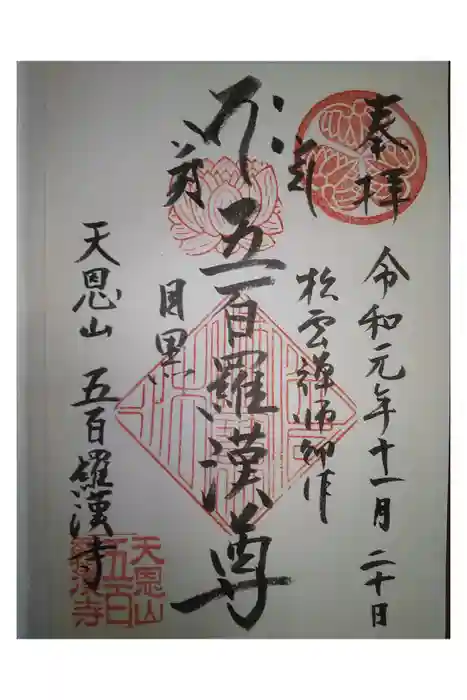 奉拝
令和元年十一月二十日
松雲禪師御作
五百羅漢尊
目黒
天恩山 五百羅漢寺
天恩山
五百
羅漢寺